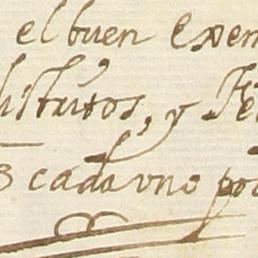 el buen Exem
distritos, y Fe
cada vno po